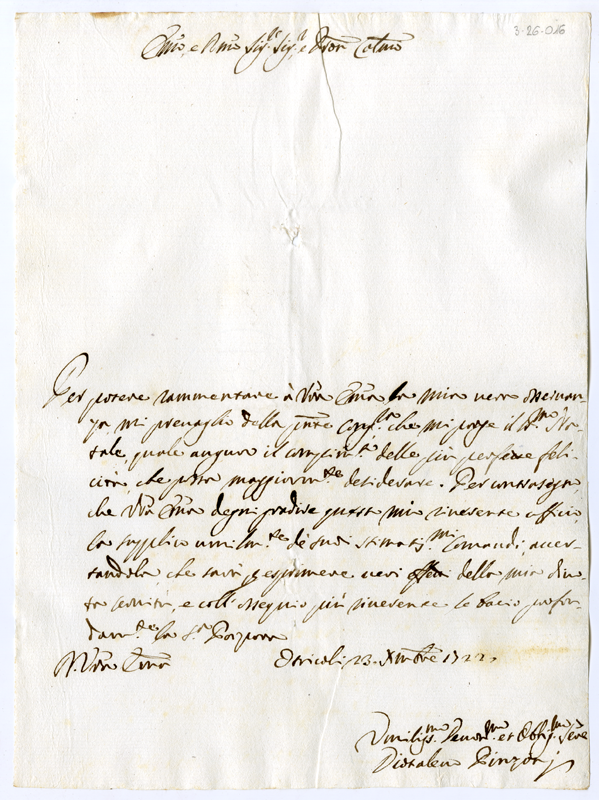 3-26-016
Emo, e Rmo Sig.re Sig.r e Pron Colmo
Per potere rammentare à Vra Emza la mia vera osservan-
za, mi prevaglio della pnte cong.ra che mi porge il S.mo Na-
tale, quale auguro il complim.to delle più perfette feli-
cità, che possa maggiorm.te desiderare. Per contrasegno,
che Vra Emza degni gradire questo mio riverente officio,
la supplico umilm.te de suoi stimatis.mi comandi, accer-
tandola, che sarà p esprimere veri effetti della mia divo-
ta servitù, e coll' ossequio più riverente le bacio profon-
dam.te la S.ra Porpora
D. Vra Emza
Otricoli 23. Xmbre 1722,
Umilis.mo Devot.mo et Obblig.mo Serv.e